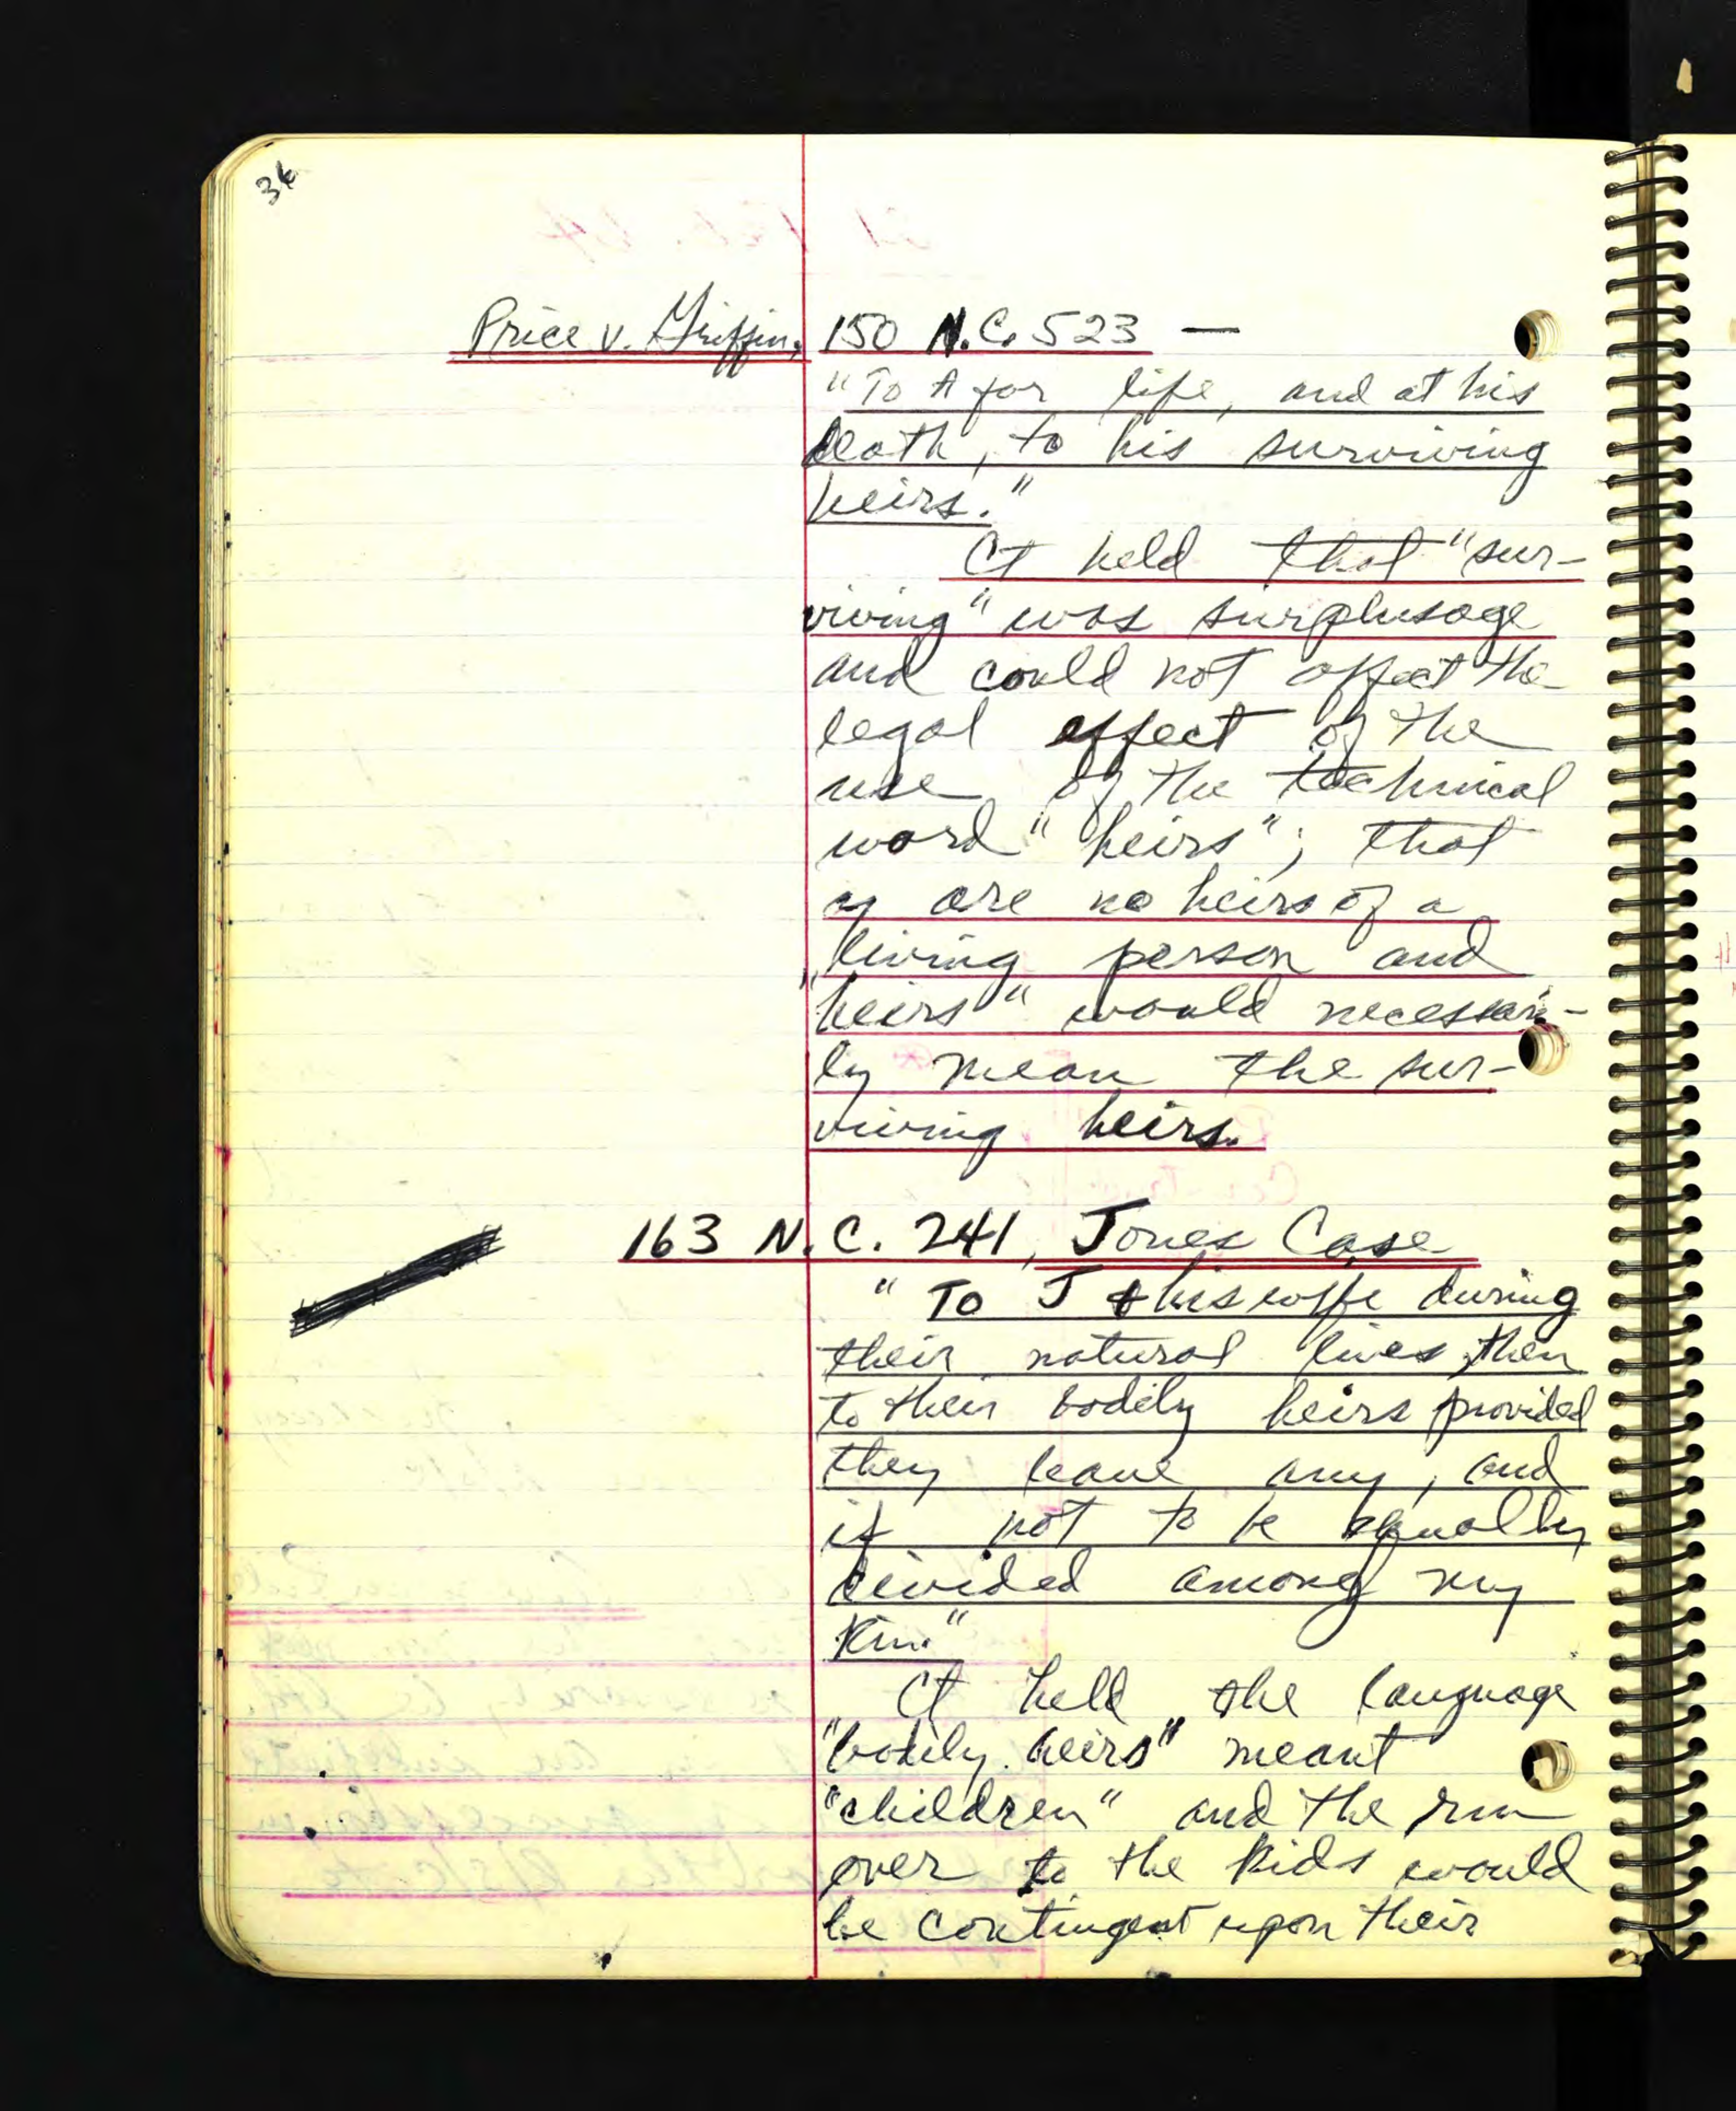 34
Price v. Griffin, 150 N.C. 523 —
"To A for life, and at his
death, to his surviving
heirs."
Ct held that "sur-
viving" was surplusage
and could not affect the
legal effect of the
use of the technical
word "heirs"; that
are no heirs of a
living person and
"heirs" would necessari-
ly mean the sur-
viving heirs.
163 N.C. 241, Jones Case
"To J & his wife during
their natural lives, then
to their bodily heirs provided
they leave any, and
if not to be equally
divided among my
Kin."
Ct held the language
"bodily heirs" meant
"children" and the rm
over to the kids would
be contingent upon their